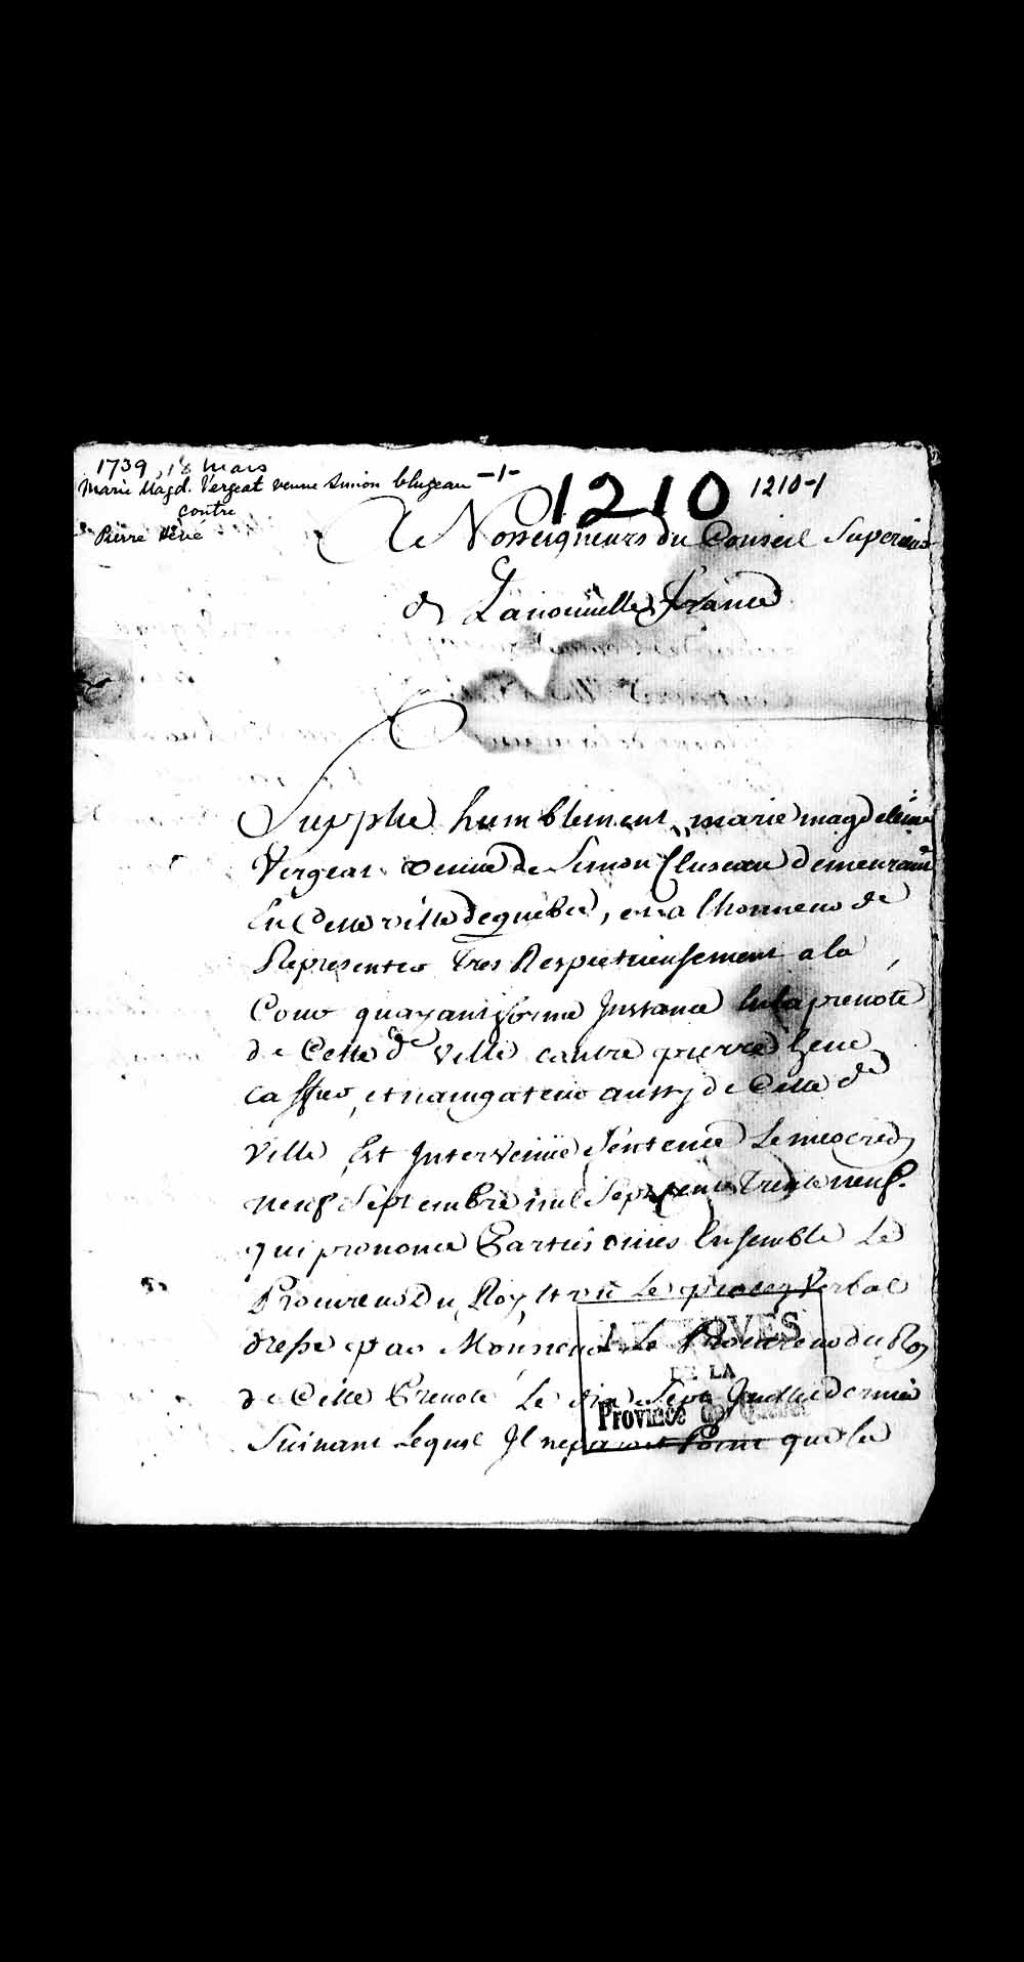 1739, 18 Mars
Marie Magd. Vergeat veuve Simon Cluzeau -1-
contre
Pierre Hévé
1210
1210-1
A Nosseigneurs du Conseil Superieur
de Lanouuelle france
Supplie humblement marie magdeleine
Vergeat veuue de Simon Cluseau demeurant
En Cette ville de quebec, et a lhonneur de
Representer tres Respectueusement a la
Cour quayant formé Instance En la prevoté
de Cette de ville contre pierre heué
et nauigateur aussy de Cette de
ville Est Interveniie Sentence Le mecredy
neuf Septembre mil Sept cents trente neuf.
qui prononce Parties ouies Ensemble Le
Procureur Du Roy, et vû Le procez Verbal
dressé par Monsieur Le Procureur du Roy
de Cette Prevoté Le Juillet dernier
Suivant Lequel Il neparoist Point que les
ARCHIVES
DE LA
Province de Quebec